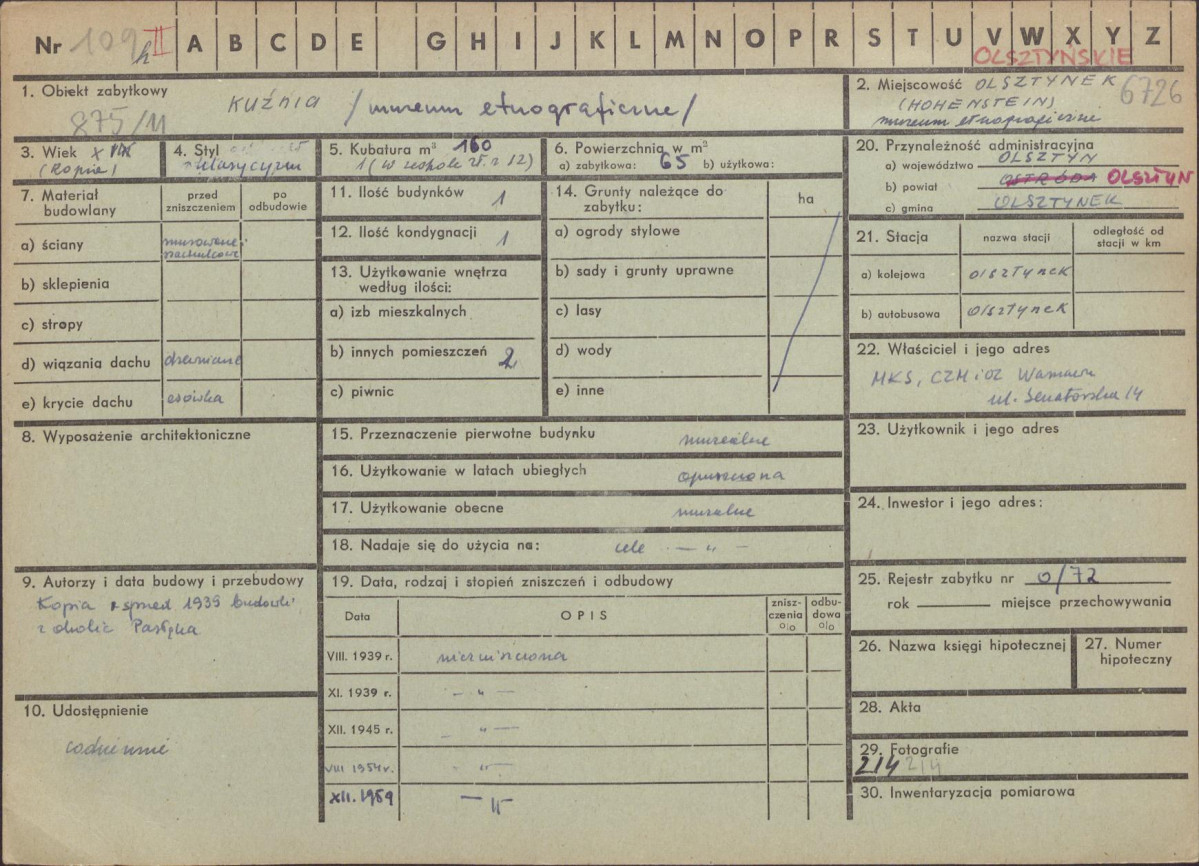 Nr 109 h II A B C D E G H I J K L M N O P R S T U V W X Y Z
OLSZTYŃSKIE
1. Obiekt zabytkowy
KUŹNIA /muzeum etnograficzne/
875/11
2. Miejscowość OLSZTYNEK
(HOHENSTEIN)
muzeum etnograficzne
6726
3. Wiek X
(kopia)
4. Styl
klasycyzm
5. Kubatura m³ 160
1 (w zespole zł. z 12)
6. Powierzchnia w m²
a) zabytkowa: 65 b) użytkowa:
20. Przynależność administracyjna
a) województwo OLSZTYN
b) powiat OSTRÓDA OLSZTYN
c) gmina OLSZTYNEK
7. Materiał budowlany
przed zniszczeniem
po odbudowie
a) ściany murowane,
szachulcowe
b) sklepienia
c) stropy
d) wiązania dachu drewniane
e) krycie dachu esówka
11. Ilość budynków 1
12. Ilość kondygnacji 1
13. Użytkowanie wnętrza
według ilości:
a) izb mieszkalnych
b) innych pomieszczeń 2
c) piwnic
14. Grunty należące do
zabytku:
ha
a) ogrody stylowe
b) sady i grunty uprawne
c) lasy
d) wody
e) inne
21. Stacja
nazwa stacji
odległość od
stacji w km
a) kolejowa Olsztynek
b) autobusowa Olsztynek
22. Właściciel i jego adres
MKS, CZM i OZ Warszawa
ul. Senatorska 14
8. Wyposażenie architektoniczne
15. Przeznaczenie pierwotne budynku muzealne
16. Użytkowanie w latach ubiegłych opuszczona
17. Użytkowanie obecne muzealne
18. Nadaje się do użycia na: cele — „ —
23. Użytkownik i jego adres
24. Inwestor i jego adres:
9. Autorzy i data budowy i przebudowy
Kopia sprzed 1939 budowli
z okolic Pasłęka
19. Data, rodzaj i stopień zniszczeń i odbudowy
Data
OPIS
znisz-
czenia
o|o
odbu-
dowa
o|o
VIII. 1939 r. niezniszczona
XI. 1939 r. — „ —
XII. 1945 r. — „ —
VIII 1954 r. — „ —
XII. 1959 — „
25. Rejestr zabytku nr 0/72
rok miejsce przechowywania
26. Nazwa księgi hipotecznej
27. Numer
hipoteczny
10. Udostępnienie
codziennie
28. Akta
29. Fotografie
214 214
30. Inwentaryzacja pomiarowa